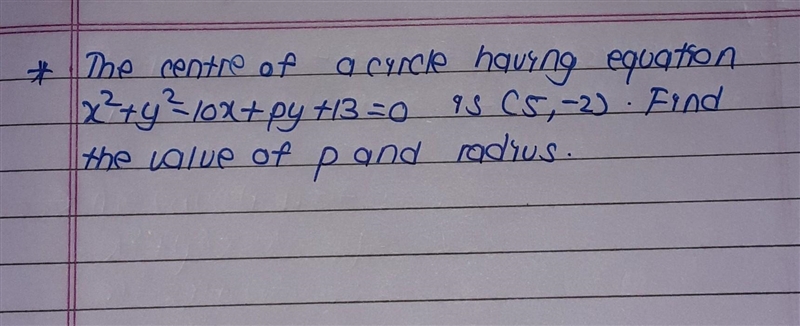 * The centre of a circle having equation
x²+y²-10x+py+13=0 is (5,-2). Find
the value of p and radius.